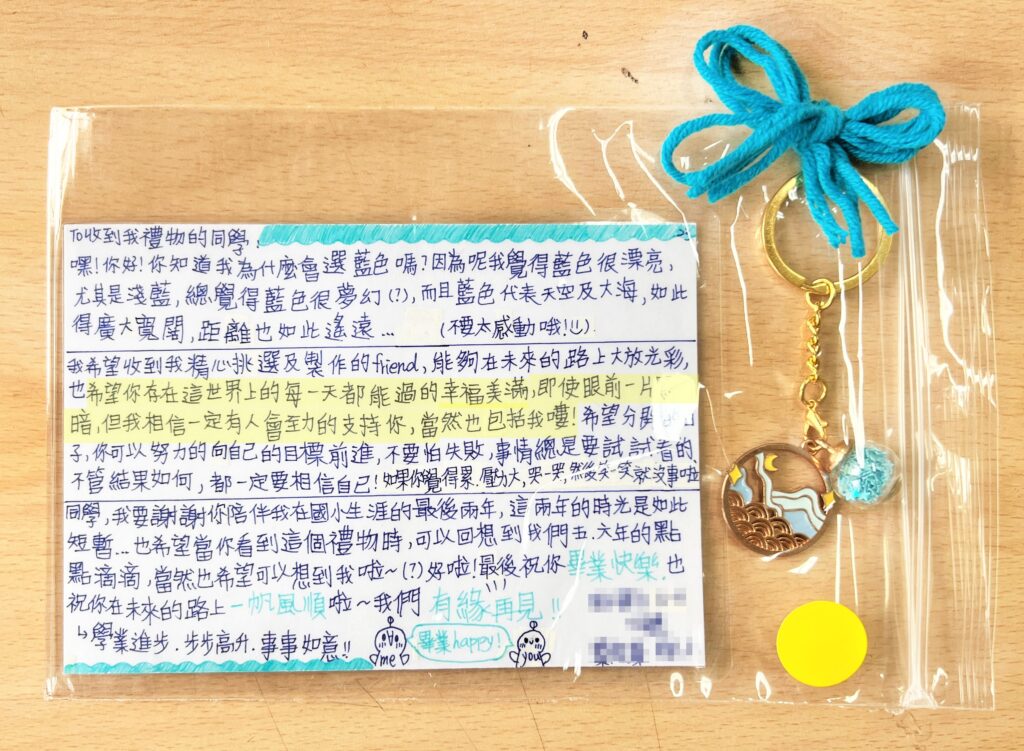 To收到我禮物的同學:
嘿!你好!你知道我為什麼會選藍色嗎?因為呢我覺得藍色很漂亮,
尤其是淺藍,總覺得藍色很夢幻(?),而且藍色代表天空及大海,如此
得廣大寬闊,距離也如此遙遠... (不要太感動哦!)
我希望收到我精心挑選及製作的friend,能夠在未來的路上大放光彩,
也希望你存在這世界上的每一天都能過的幸福美滿,即使眼前一片
暗,但我相信一定有人會至力的支持你,當然也包括我嘍!希望分
子,你可以努力的向自己的目標前進,不要怕失敗,事情總是要試試看的,
不管結果如何,都一定要相信自己!如果你覺得累.壓力大,哭一哭,然後笑一笑就沒事啦
同學,我要謝謝你陪伴我在國小生涯的最後兩年,這兩年的時光是如此
短暫...也希望當你看到這個禮物時,可以回想到我們五.六年的點
點滴滴,當然也希望可以想到我啦~(?)好啦!最後祝你畢業快樂.也
祝你在未來的路上一帆風順啦~我們有緣再見!!
↳學業進步.步步高升.事事如意!!
me 畢業happy! you